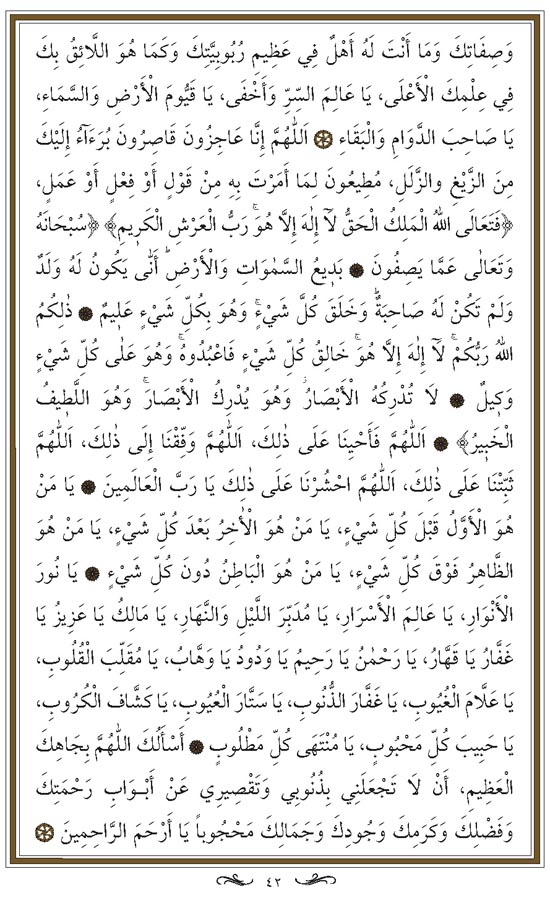 وَصِفَاتِكَ وَمَا أَنْتَ لَهُ أَهْلٌ فِي عَظِيمِ رُبُوبِيَّتِكَ وَكَمَا هُوَ اللَّائِقُ بِكَ
فِي عِلْمِكَ الْأَعْلَى، يَا عَالِمَ السِّرِّ وَأَخْفَى، يَا قَيُّومَ الْأَرْضِ وَالسَّمَاءِ،
يَا صَاحِبَ الدَّوَامِ وَالْبَقَاءِ ۞ اَللّٰهُمَّ إِنَّا عَاجِزُونَ قَاصِرُونَ بُرَءَاۤءُ إِلَيْكَ
مِنَ الزَّيْغِ والزَّلَلِ، مُطِيعُونَ لِمَا أَمَرْتَ بِهِ مِنْ قَوْلٍ أَوْ فِعْلٍ أَوْ عَمَلٍ،
﴿فَتَعَالَى اللهُ الْمَلِكُ الْحَقُّ لَاۤ إِلٰهَ إِلَّا هُوَۚ رَبُّ الْعَرْشِ الْكَرِيمِ﴾ ﴿سُبْحَانَهُ
وَتَعَالٰى عَمَّا يَصِفُونَ ۞ بَدِيعُ السَّمٰوَاتِ وَالْأَرْضِۗ أَنّٰى يَكُونُ لَهُ وَلَدٌ
وَلَمْ تَكُنْ لَهُ صَاحِبَةٌۗ وَخَلَقَ كُلَّ شَيْءٍۚ وَهُوَ بِكُلِّ شَيْءٍ عَلِيمٌ ۞ ذٰلِكُمُ
اللهُ رَبُّكُمْۚ لَاۤ إِلٰهَ إِلَّا هُوَۚ خَالِقُ كُلِّ شَيْءٍ فَاعْبُدُوهُۚ وَهُوَ عَلٰى كُلِّ شَيْءٍ
وَكِيلٌ ۞ لَا تُدْرِكُهُ الْأَبْصَارُۘ وَهُوَ يُدْرِكُ الْأَبْصَارَۚ وَهُوَ اللَّطِيفُ
الْخَبِيرُ﴾ ۞ اَللّٰهُمَّ فَأَحْيِنَا عَلَى ذٰلِكَ، اَللّٰهُمَّ وَفِّقْنَا إِلَى ذٰلِكَ، اَللّٰهُمَّ
ثَبِّتْنَا عَلَى ذٰلِكَ، اَللّٰهُمَّ احْشُرْنَا عَلَى ذٰلِكَ يَا رَبَّ الْعَالَمِينَ ۞ يَا مَنْ
هُوَ الْأَوَّلُ قَبْلَ كُلِّ شَيْءٍ، يَا مَنْ هُوَ الْأٰخِرُ بَعْدَ كُلِّ شَيْءٍ، يَا مَنْ هُوَ
الظَّاهِرُ فَوْقَ كُلِّ شَيْءٍ، يَا مَنْ هُوَ الْبَاطِنُ دُونَ كُلِّ شَيْءٍ ۞ يَا نُورَ
الْأَنْوَارِ، يَا عَالِمَ الْأَسْرَارِ، يَا مُدَبِّرَ اللَّيْلِ وَالنَّهَارِ، يَا مَالِكُ يَا عَزِيزُ يَا
غَفَّارُ يَا قَهَّارُ، يَا رَحْمٰنُ يَا رَحِيمُ يَا وَدُودُ يَا وَهَّابُ، يَا مُقَلِّبَ الْقُلُوبِ،
يَا عَلَّامَ الْغُيُوبِ، يَا غَفَّارَ الذُّنُوبِ، يَا سَتَّارَ الْعُيُوبِ، يَا كَشَّافَ الْكُرُوبِ،
يَا حَبِيبَ كُلِّ مَحْبُوبٍ، يَا مُنْتَهَى كُلِّ مَطْلُوبٍ ۞ أَسْأَلُكَ اللّٰهُمَّ بِجَاهِكَ
الْعَظِيمِ، أَنْ لَا تَجْعَلَنِي بِذُنُوبِي وَتَقْصِيرِي عَنْ أَبْوَابِ رَحْمَتِكَ
وَفَضْلِكَ وَكَرَمِكَ وَجُودِكَ وَجَمَالِكَ مَحْجُوباً يَا أَرْحَمَ الرَّاحِمِينَ ۞
٤٢